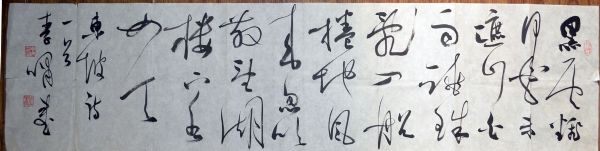 黑雲翻
墨未
遮山白
雨跳珠
亂入船
捲地風
来忽吹
散望湖
樓下水
如天
東坡詩
一首